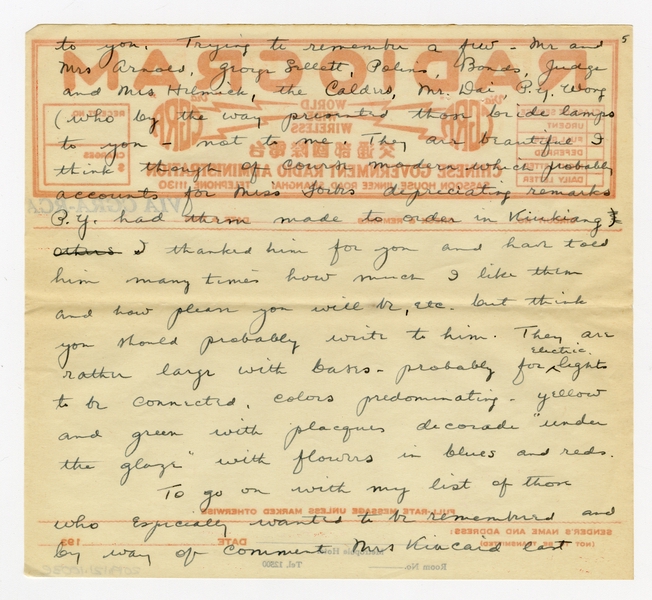 5
to you. Trying to remember a few - Mr and
Mrs Arnold, George Sellett, Polins, Bonds, Judge
and Mrs Helmick, the Calders, Mr. Dai P.Y. Wong
(who by the way presented those bride lamps
to you - not to me. They are beautiful I
think though of course modern which probably
accounts for Miss depreciating remarks
P.Y. had them made to order in Kiukiang
others I thanked him for you and have told
him many times how much I like them
and how please you will be, etc. but think
you should probably write to him. They are
rather large with bases - probably for electric lights
to be connected, colors predominating - yellow
and green with placques decorade "under
the glaze" with flowers in blues and reds.
To go on with my list of those
who especially wanted to be remembered and
by way of comment Mrs Kincaid last
RADIOGRAM
WORLD
WIRELESS
交通部國際電台
CHINESE GOVERNMENT RADIO ADMINISTRATION
SASSOON HOUSE, JINKEE ROAD, SHANGHAI. TELEPHONE 11130
VIA CGRA-RCA
FULL-RATE MESSAGE UNLESS MARKED OTHERWISE
SENDER'S NAME AND ADDRESS:
(NOT TO BE TRANSMITTED)
DATE 193
Room No.
Tel. 12500